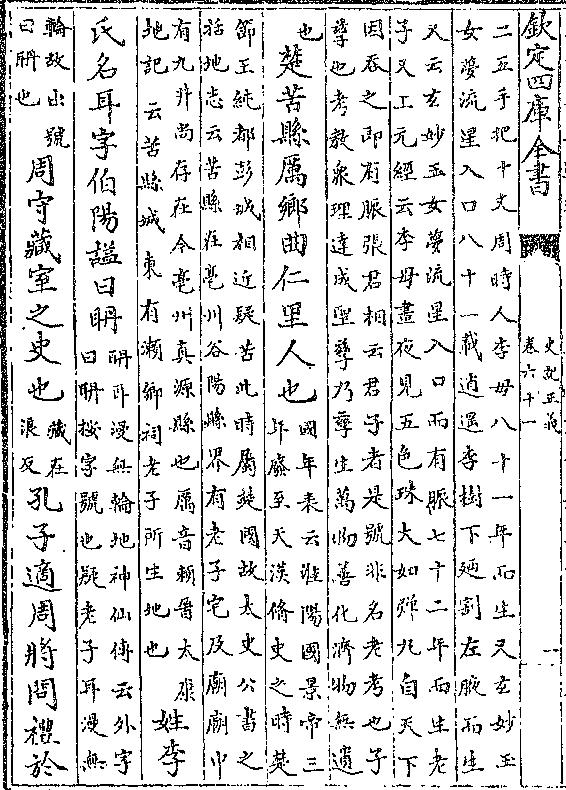 欽定四庫全書
史記正義
卷六十一
一
二五手把十文周時人李母八十一年而生又玄妙玉
女夢流星入口八十一載逍遥李樹下廼割左腋而生
又云玄妙玉女夢流星入口而有脈七十二年而生老
子又上元經云李母晝夜見五色珠大如彈丸自天下
因吞之即有脈張君相云君子者是號非名老考也子
孳也考教衆理達成聖孳乃孳生萬物善化濟物無遺
也
楚苦縣厲鄉曲仁里人也
國年表云淮陽國景帝三
年廢至天漢脩史之時楚
節王純都彭城相近疑苦此時屬楚國故太史公書之
括地志云苦縣在亳州谷陽縣界有老子宅及廟廟中
有九井尚存在今亳州真源縣也厲音頼晉太康
地記云苦縣城東有瀨鄉祠老子所生地也
姓李
氏名耳字伯陽諡曰耼
耼耳漫無輪地神仙傳云外字
曰耼按字號也疑老子耳漫無
輪故出號
曰耼也
周守藏室之史也
藏在
浪反
孔子適周將問禮於